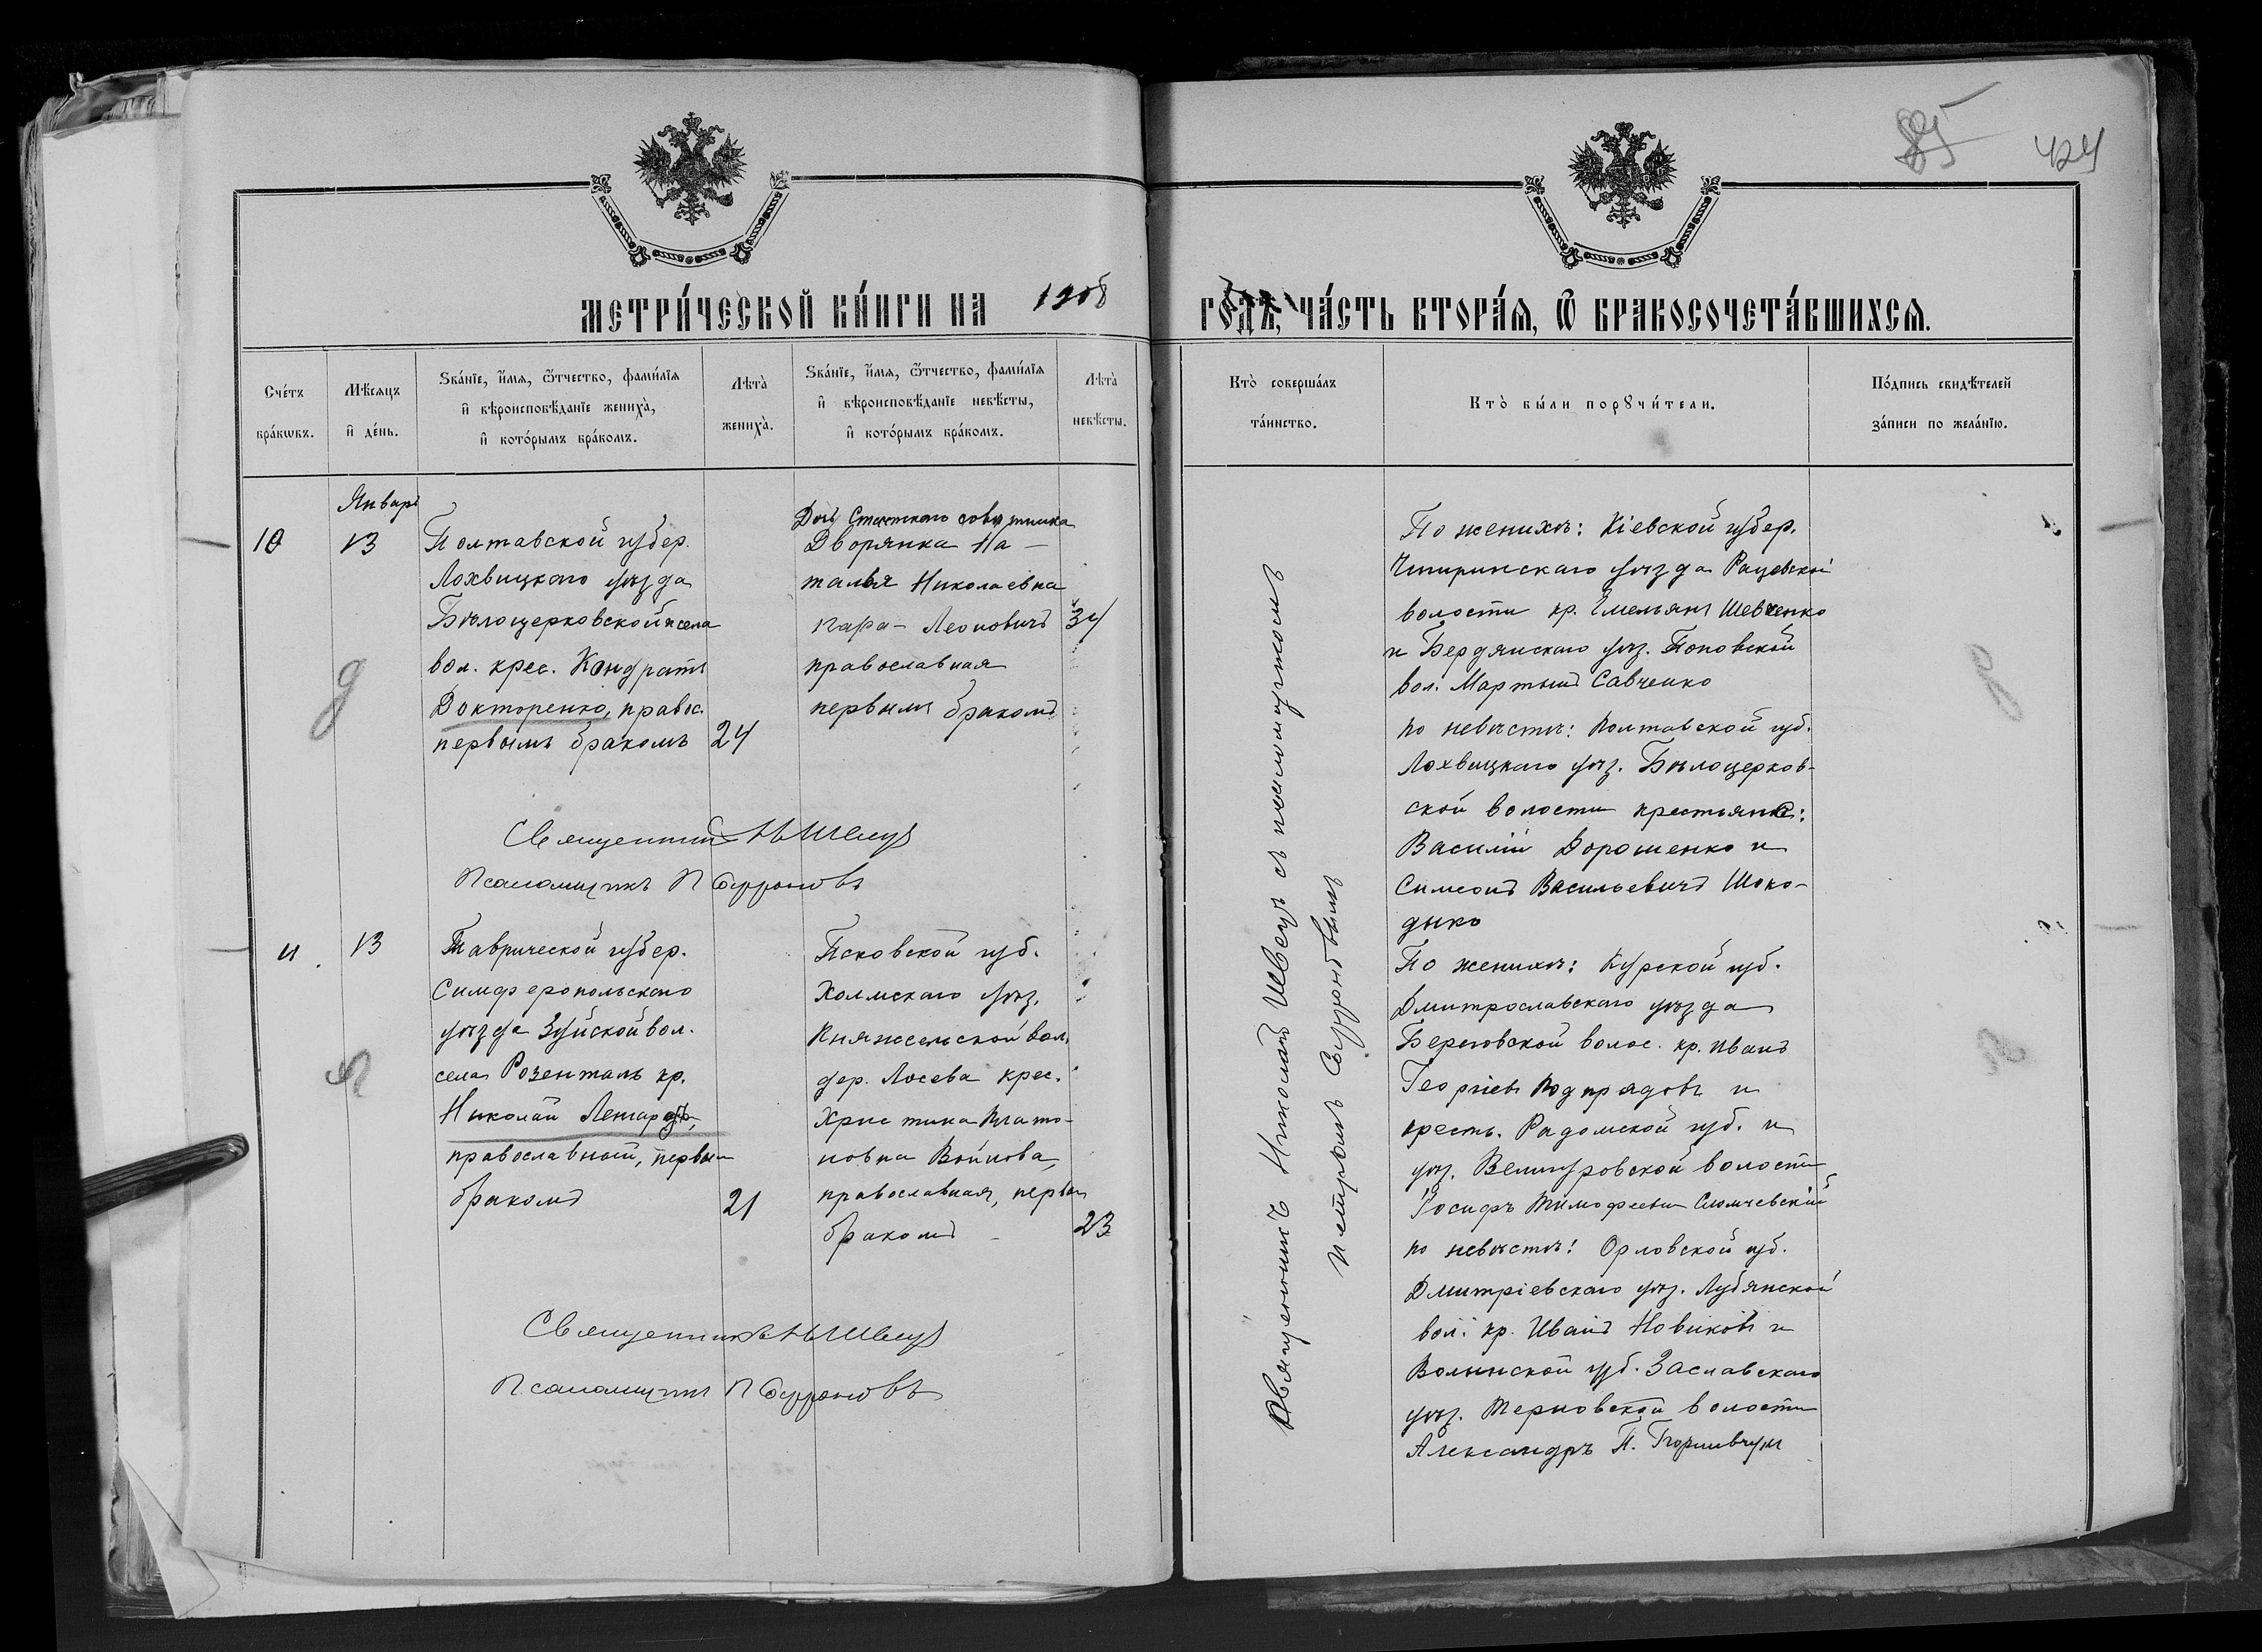 85 424
МЕТРИ́ЧЕСКОЙ КН́ИГИ НА 1908 ГОДЪ, ЧА́СТЬ ВТОРА́Я, Ѿ БРАКОСОЧЕТА́ВШИХСЯ.
Сче́тъ бра́кѡвъ.
Мѣ́сяцъ и҆ де́нь.
Ѕва́нїе, и҆́мя, ѻ҆́тчество, фами́лїя
и҆ вѣроисповѣ́данїе жениха̀,
и҆ кото́рымъ бра́комъ.
Лѣта̀ жениха̀.
Ѕва́нїе, и҆́мя, ѻ҆́тчество, фами́лїя
и҆ вѣроисповѣ́данїе невѣ́сты,
и҆ кото́рымъ бра́комъ.
Лѣта̀ невѣ́сты.
Кто̀ соверша́лъ та́инство.
Кто̀ бы́ли порꙋчи́тели.
По́дпись свидѣ́телей за́писи по жела́нїю.
Январь
10
13
Полтавской губер.
Лохвицкаго уѣзда
Бѣлоцерковской села
вол. крес. Кондратъ
Докторенко, правос.
первымъ бракомъ
24
Дочь Статскаго совѣтника
Дворянка На-
талья Николаевна
Кара-Леоновичъ
православная
первымъ бракомъ
34
Священникъ Н Швецъ
Псаломщикъ П Софроновъ
Священникъ Николай Швецъ съ псаломщикомъ
Петромъ Софроновымъ
По женихѣ: Кіевской губер.
Чигиринскаго уѣзда Рацевской
волости кр. Емельянъ Шевченко
и Бердянскаго уѣз. Поповской
вол. Мартынъ Савченко
по невѣстѣ: Полтавской губ.
Лохвицкаго уѣз. Бѣлоцерков-
ской волости крестьяне:
Василій Дорошенко и
Симеонъ Васильевичъ Шоко-
дько
11.
13
Таврической губер.
Симферопольскаго
уѣзда Зуйской вол.
села Розенталь кр.
Николай
православный, первым
бракомъ
21
Псковской губ.
Холмскаго уѣз.
Княжсельской вол.
дер. Лосева крес.
Христина Плато-
новна Войнова,
православная, первым
бракомъ
23
Священникъ Н Швецъ
Псаломщикъ П Софроновъ
По женихѣ: Курской губ.
Дмитрославскаго уѣзда
Береговской волос. кр. Иванъ
Георгіевъ Подпрядовъ и
кресть. Радомской губ. и
уѣз. волости
Іосифъ Тимофеевъ
по невѣстѣ: Орловской губ.
Дмитріевскаго уѣз. Лубянской
вол. кр. Иванъ Новиковъ и
Волынской губ. Заславскаго
уѣз. Терновской волости
Александръ П.